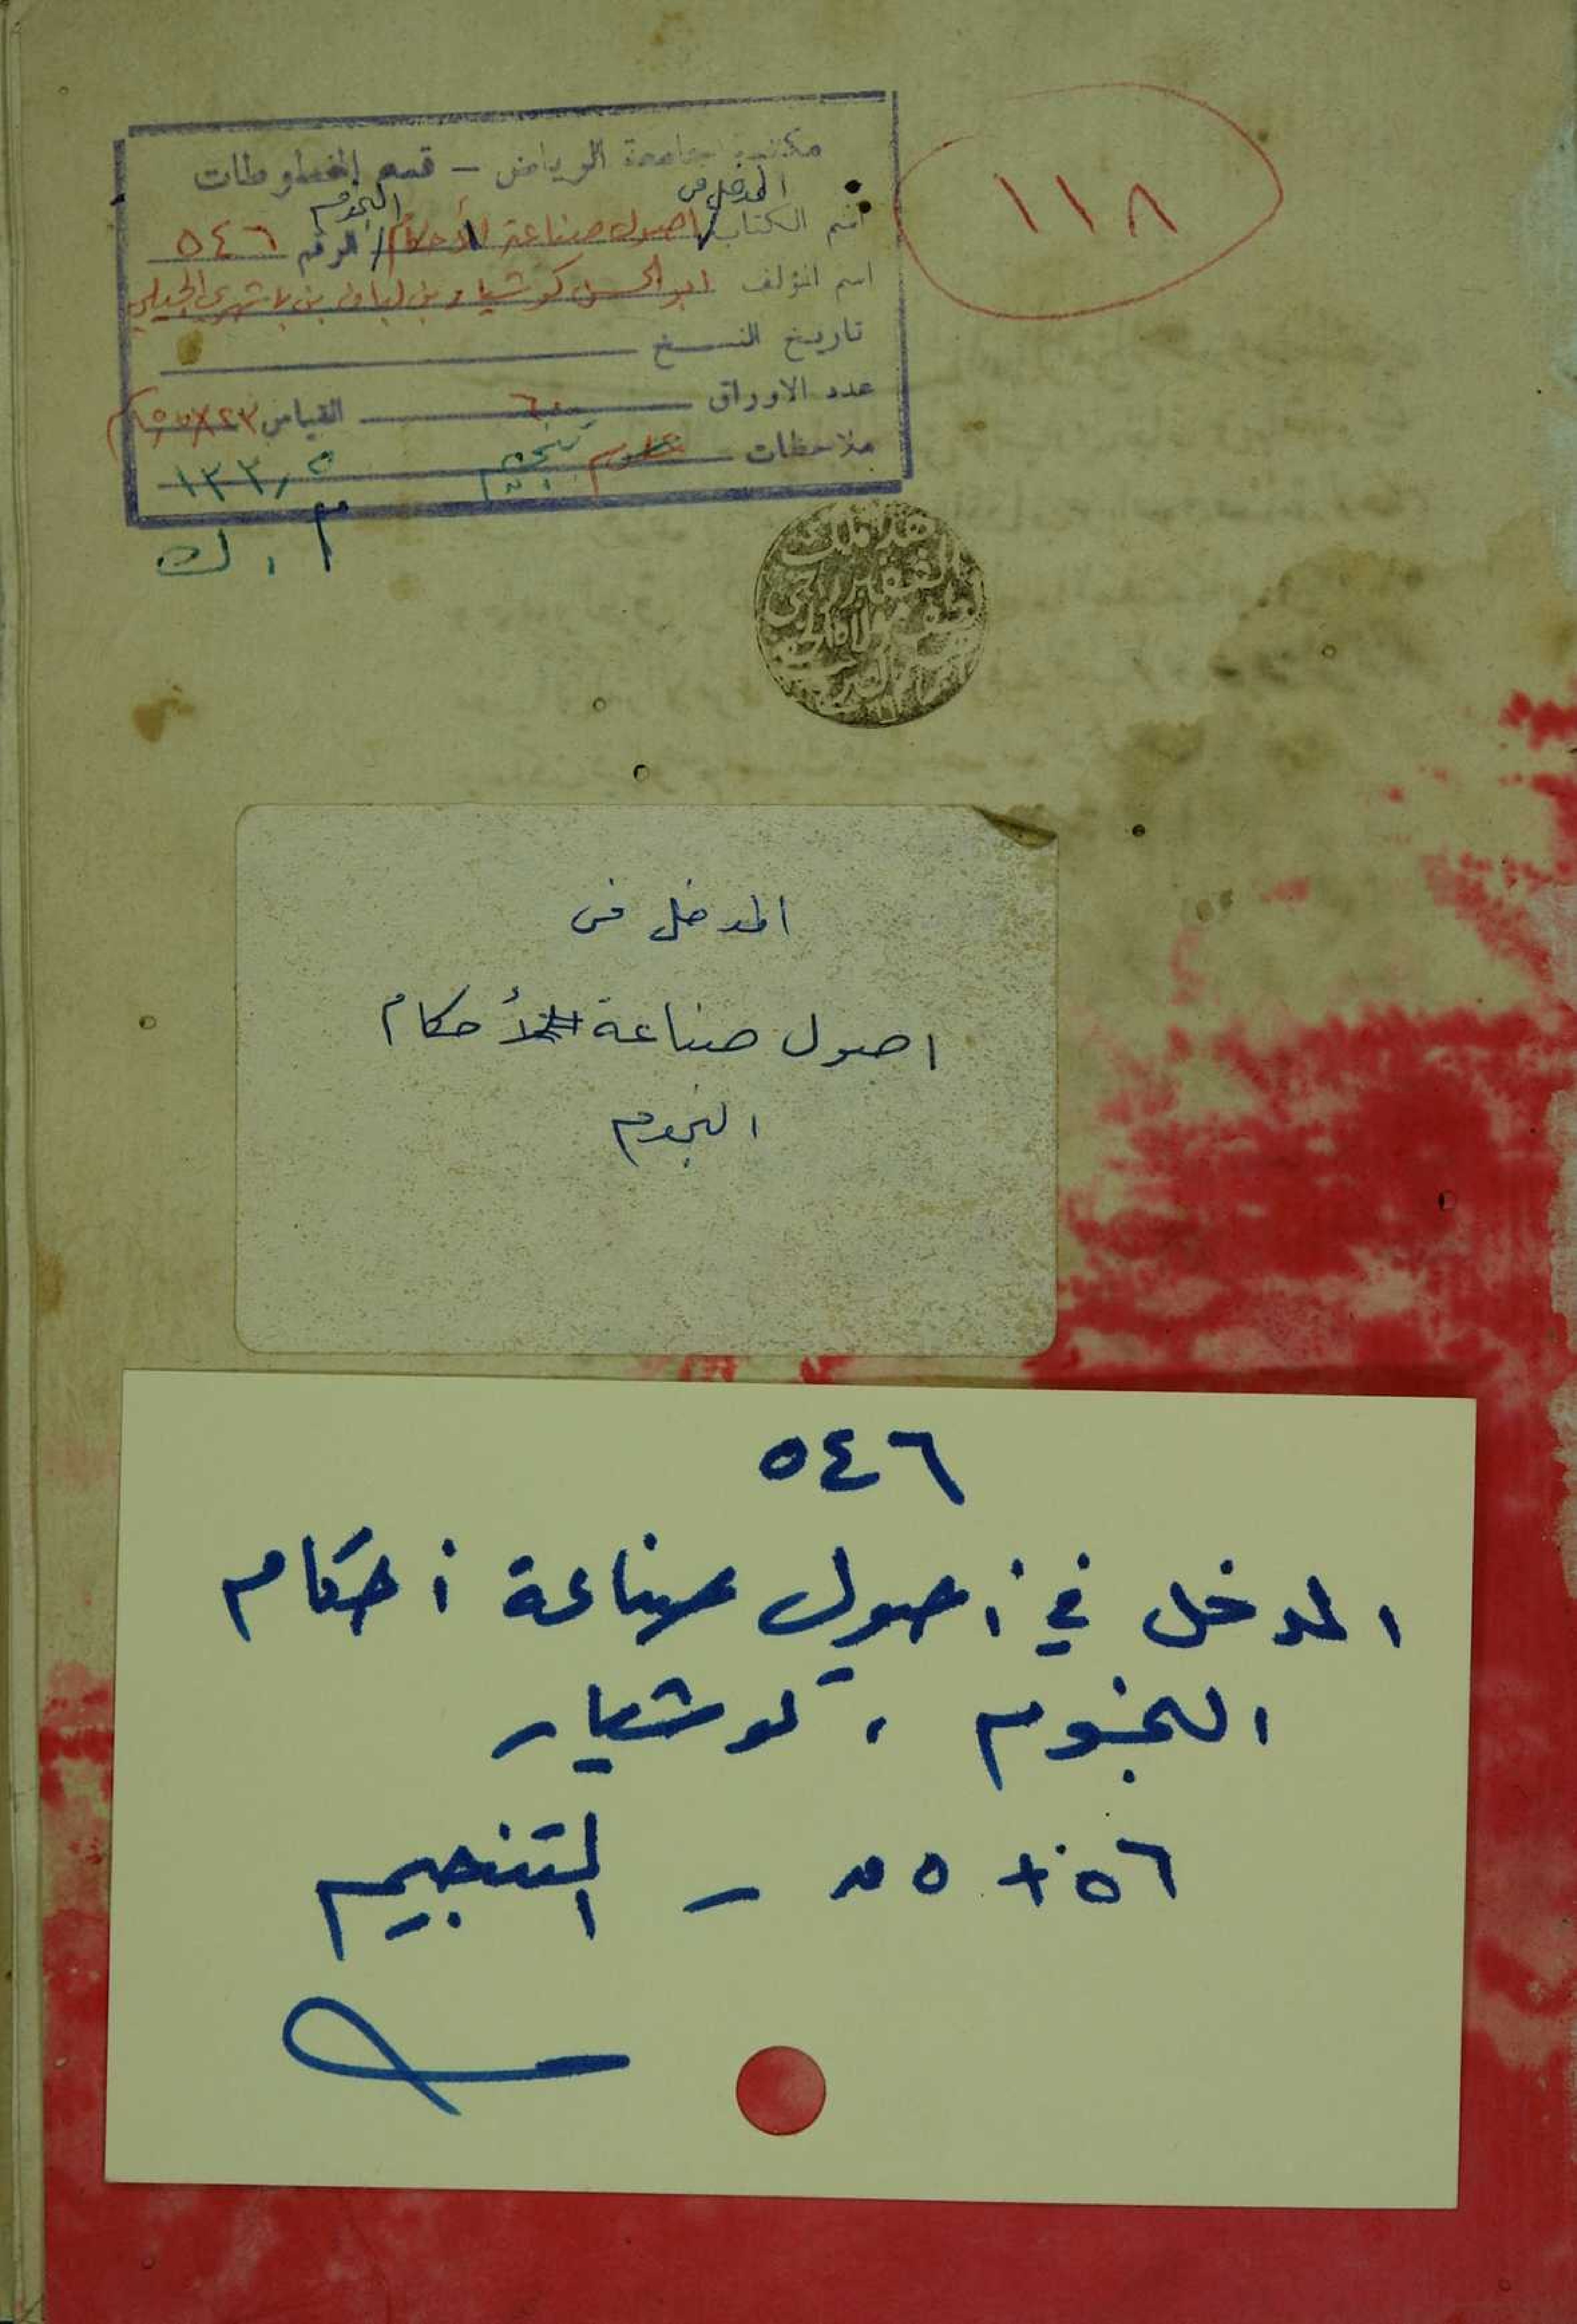 مكتبة جامعة الرياض – قسم المخطوطات
المدخل فى
النجوم
اسم الكتاب اصول صناعة الأحكام الرقم ٥٤٦
اسم المؤلف ابو الحسن كوشيار بن لبان بن باشهرى الجيلي
تاريخ النسخ
عدد الاوراق ٦٠ القياس
ملاحظات علوم تنجيم ١٣٣٫٥
م . ك
١١٨
المدخل فى
اصول صناعة الأحكام
النجوم
٥٤٦
المدخل في أصول صناعة أحكام
النجوم ، كوشيار
٥٦ + ٥٥ – التنجيم